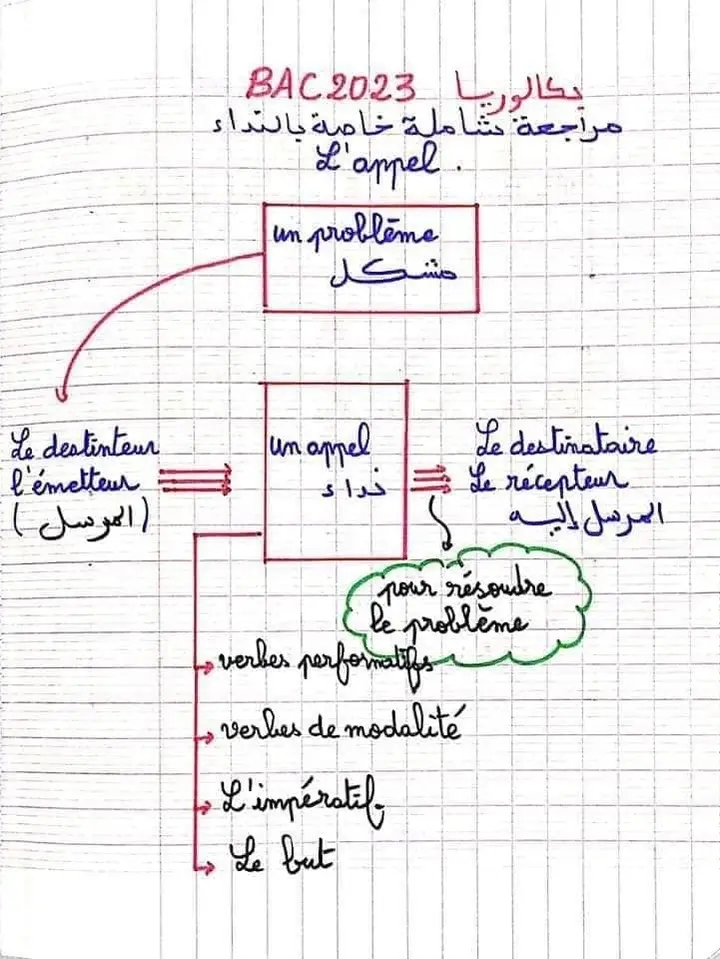 BAC 2023 بكالوريا
مراجعة شاملة خاصة بالنداء
L'appel.
un problème
مشكل
Le destinteur
l'émetteur
(المرسل)
un appel
نداء
Le destinataire
Le récepteur
المرسل إليه
pour résoudre
le problème
verbes performatifs
verbes de modalité
L'impératif
Le but